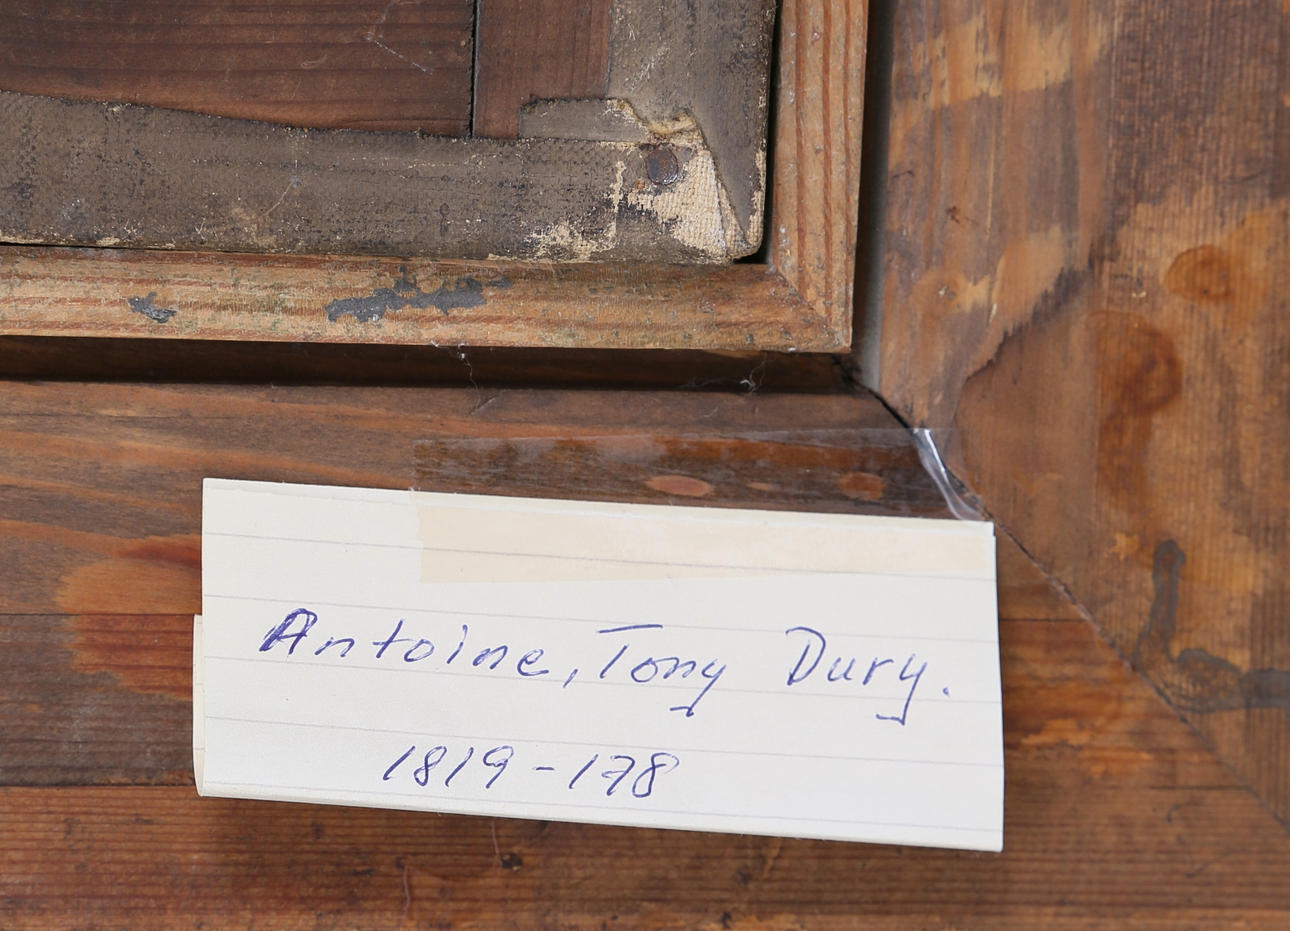 Antoine, Tony Dury.
1819-178